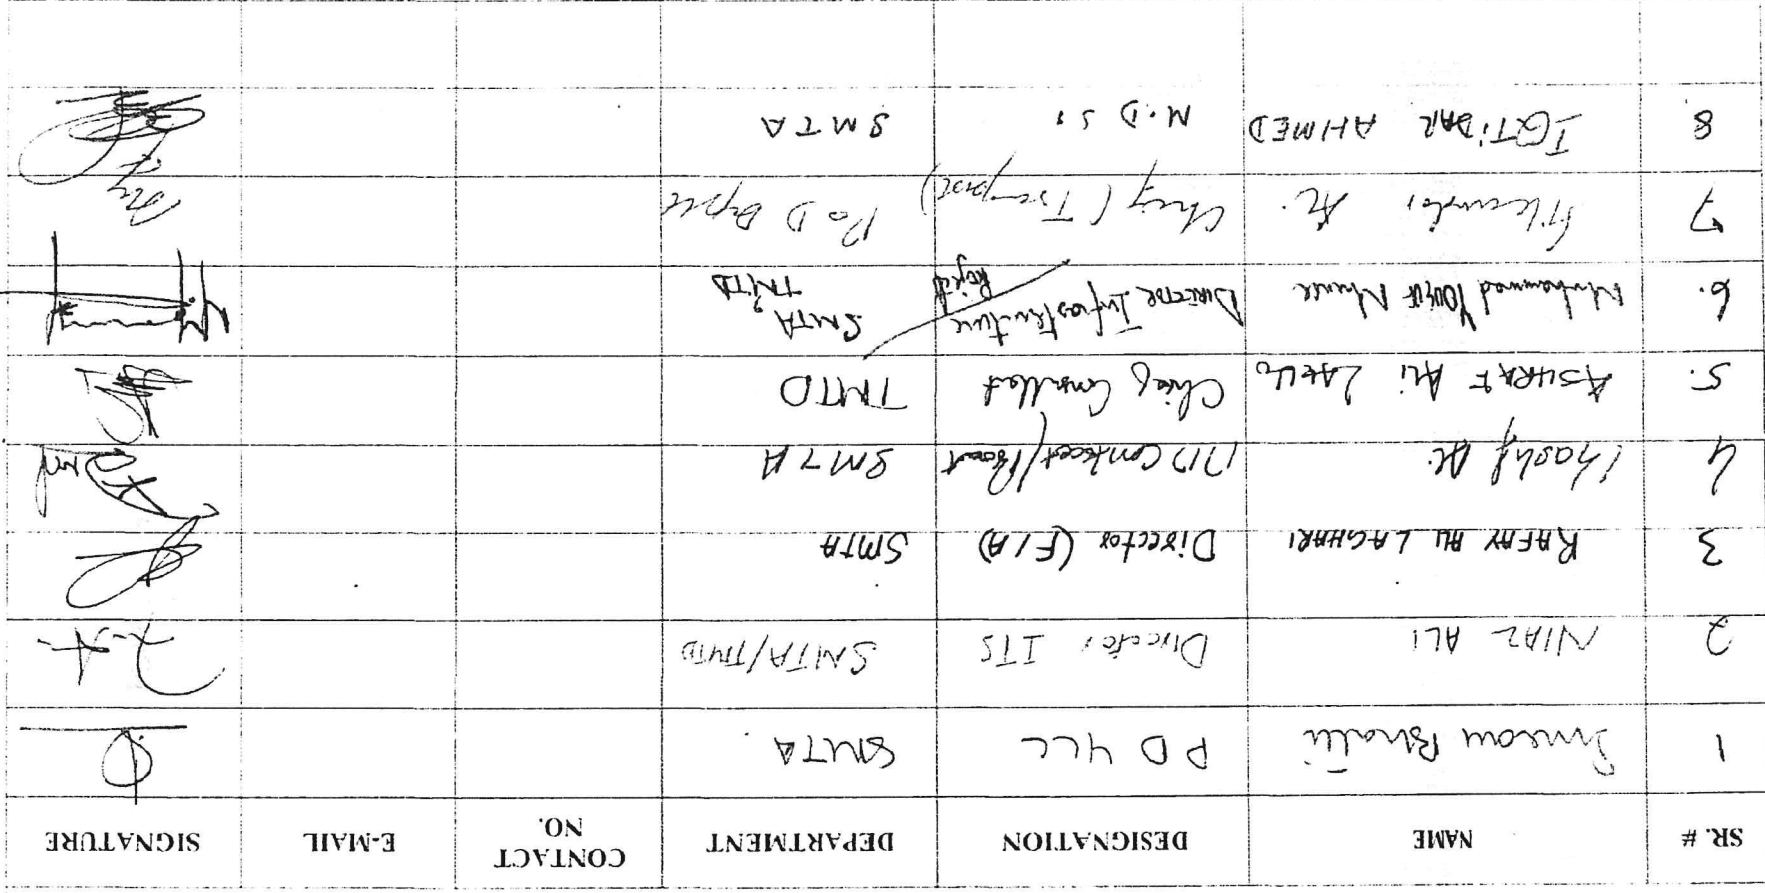 SR. # NAME DESIGNATION DEPARTMENT CONTACT NO. E-MAIL SIGNATURE
1 Bhatti P D YLL SMTA
2 NIAZ ALI Director ITS SMTA/TMTD
3 RAFAY ALI LAGHARI Director (F/A) SMTA
4 Khashif Ali DD Contract/ SMTA
5. ASHRAF Ali Chief Consultant TMTD
6. Muhammad YOUSUF DIRECTOR Infrastructure Project SMTA, TMTD
7 Ali Chief (Transport) P&D Deptt
8 IQTIDAR AHMED M.D SMTA